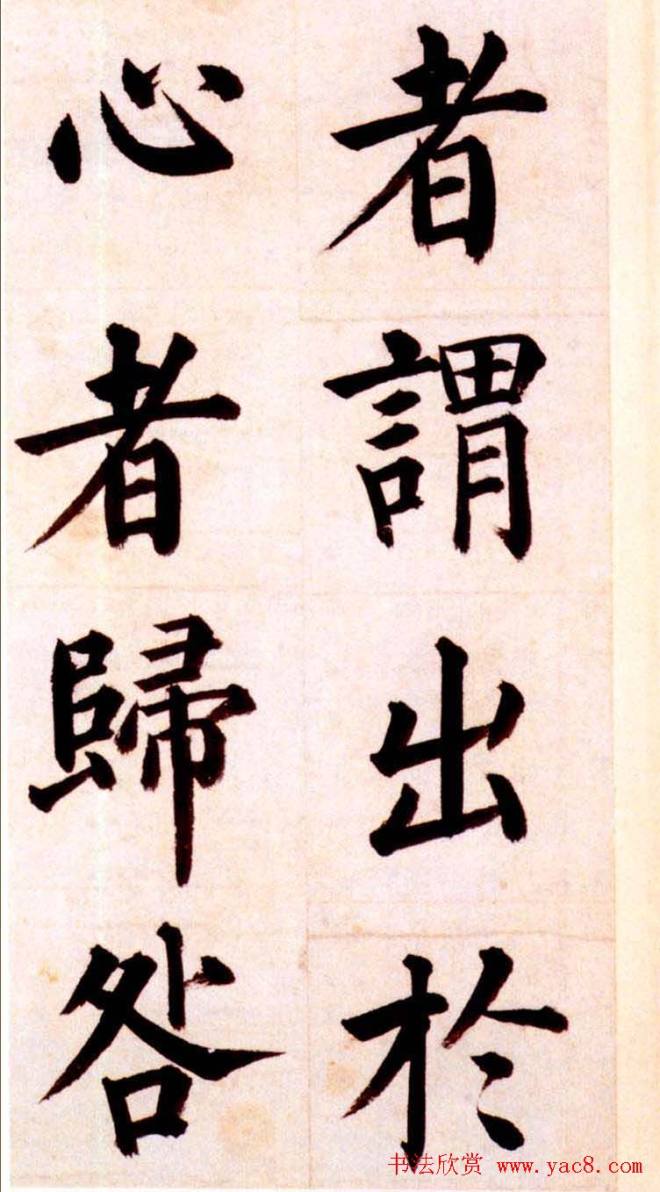 者謂出於
心者歸咎
书法欣赏 www.yac8.com